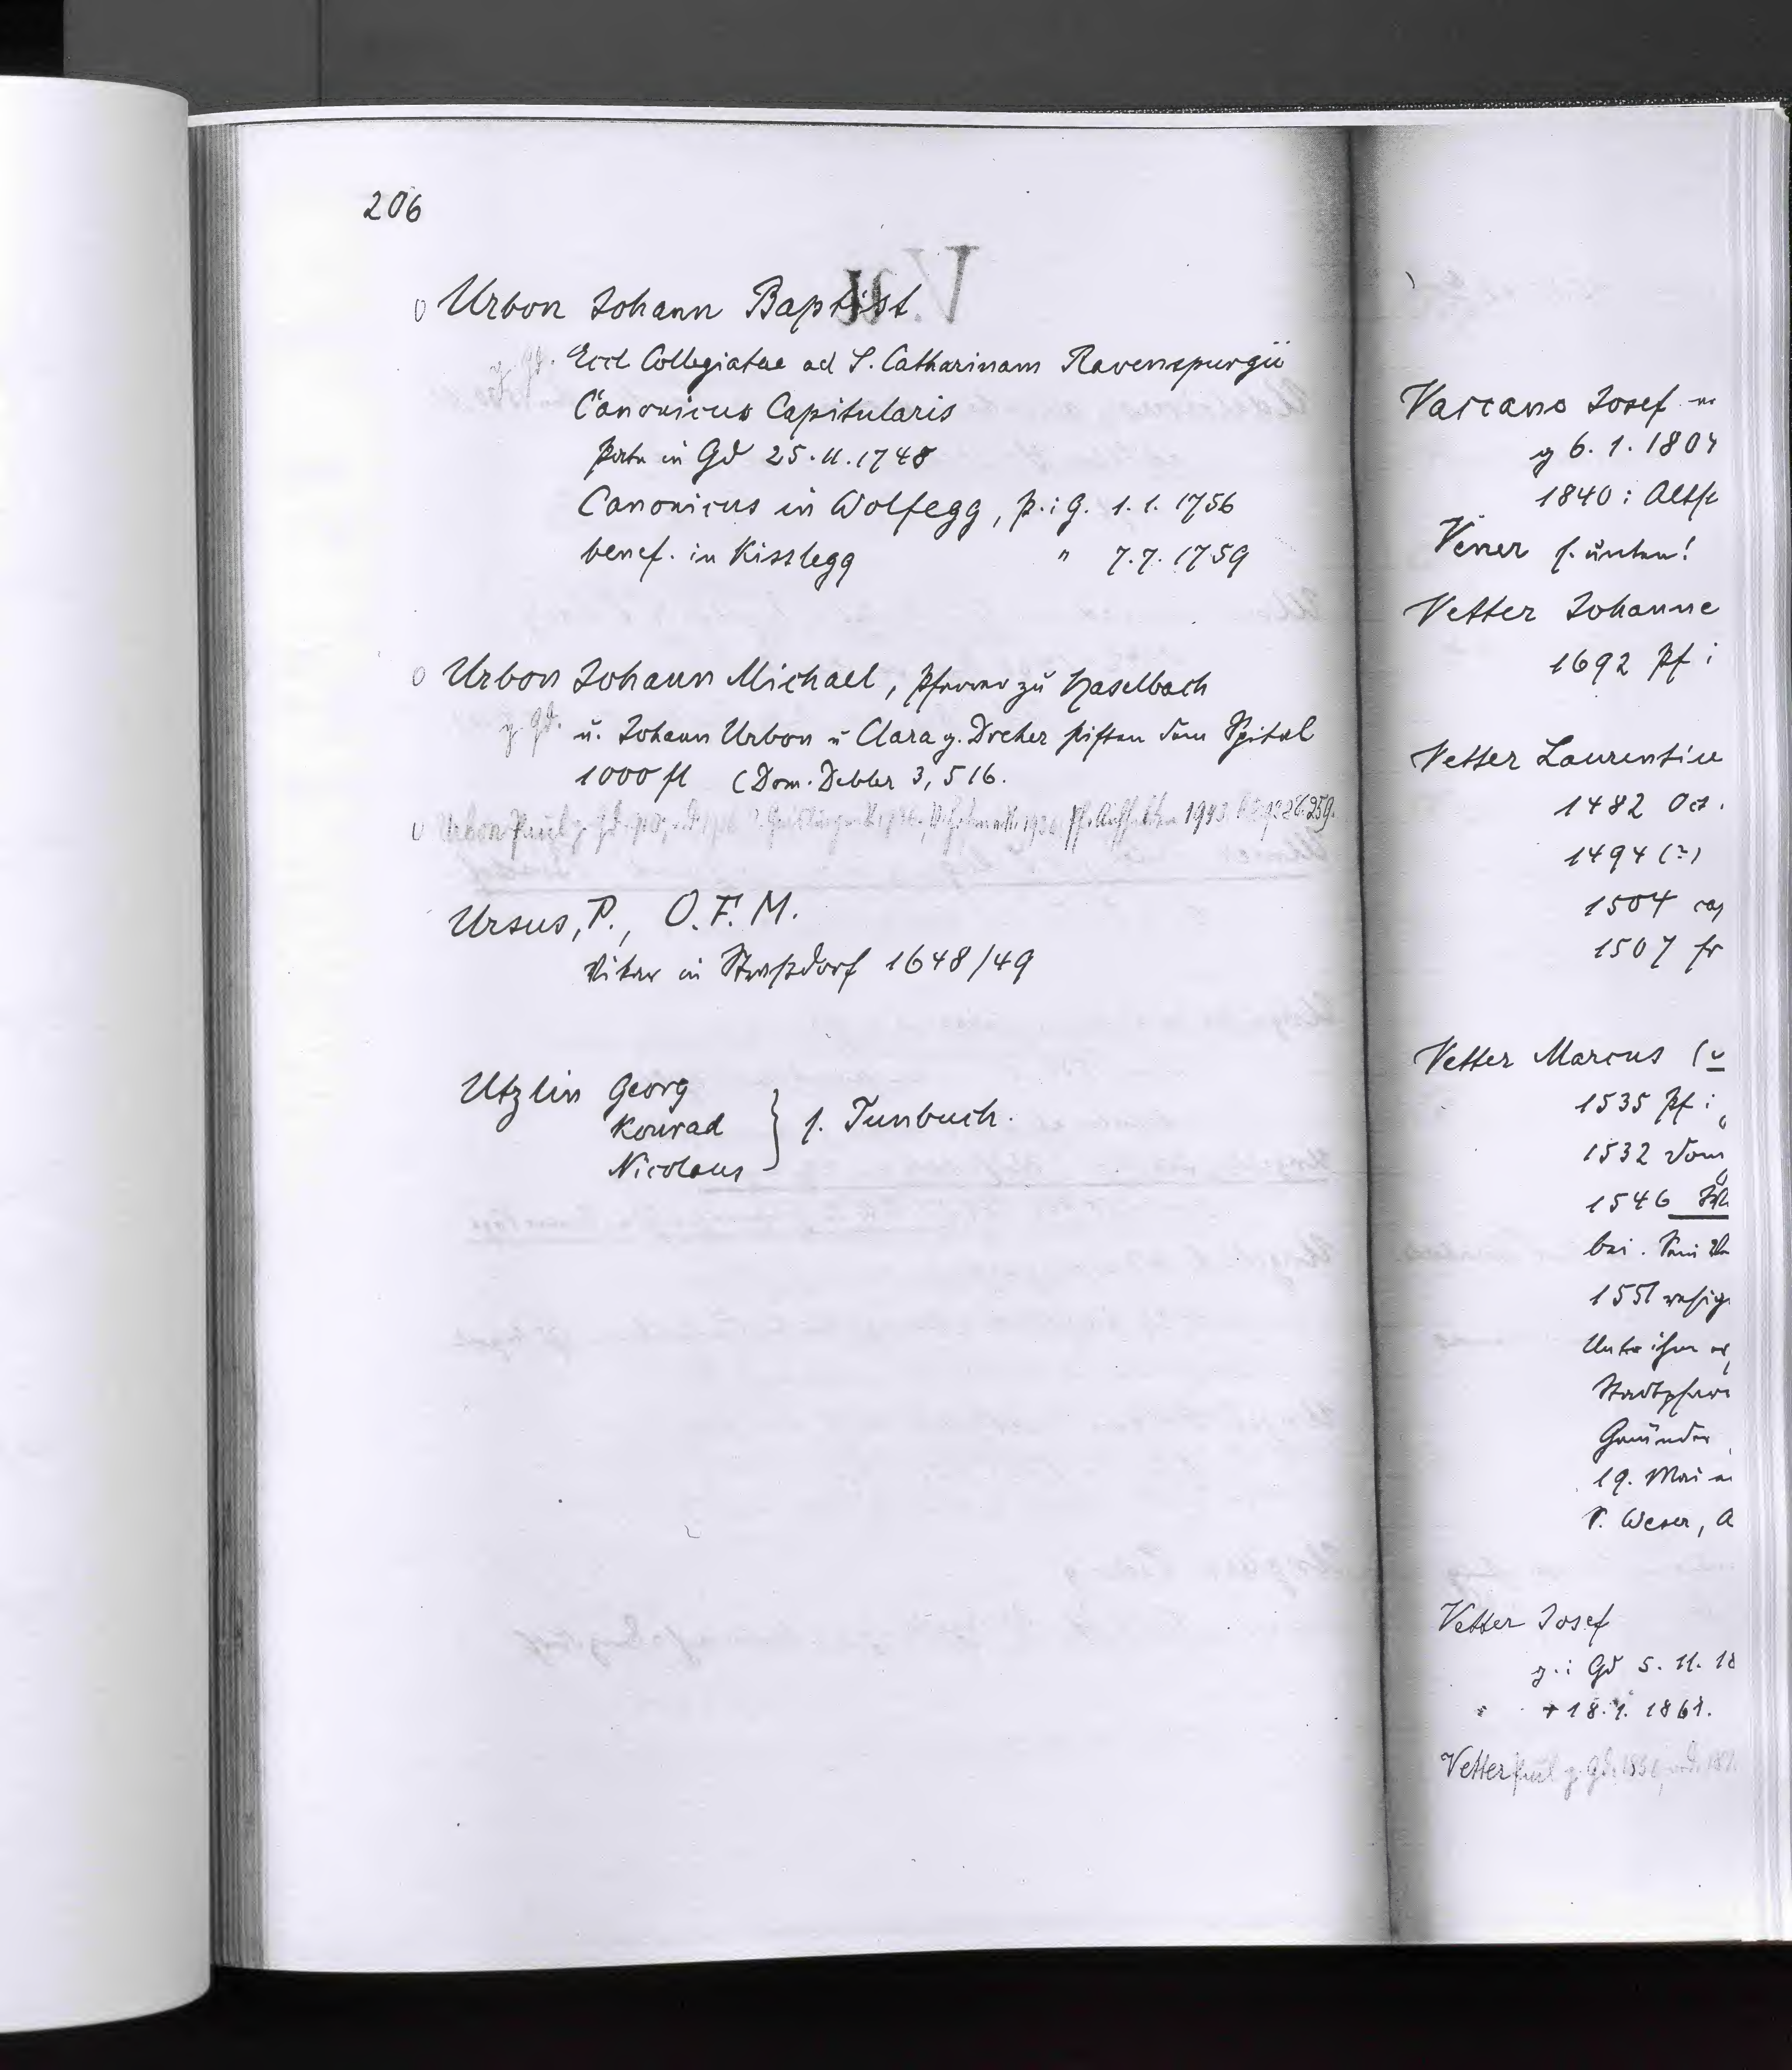 206
Urbon Johann Baptist
g. Gd. Eccl Collegiatae ad S. Catharinam Ravenspurgii
Canonicus Capitularis
in Gd 25.11.1748
Canonicus in Wolfegg, p. i G. 1.1.1756
benef. in Kisslegg " 7.7.1759
Urbon Johann Michael, Pfarrer zu Haselbach
g. Gd. u. Johann Urbon u Clara g. Dreher stiften dem Spital
1000 fl (Dom. Debler 3, 516.
Urbon Paul g. Gd.
Ursus, P., O.F.M.
Vikar in Straßdorf 1648/49
Utzlin Georg
Konrad } s. Tunbuch.
Nicolaus
Vaccano Josef
g 6.1.180
1840: 
Vener s. unten!
Vetter Johanne
1692 Pf i
Vetter Laurentiu
1482 Oct.
1494 (?)
1504 cap
1507 fr
Vetter Marcus (
1535 Pf i
1532 vom
1546
bei.
1551 resig
Unter ihm
Stadtpfar
Gmünder
19. Mai
V. Weser, A
Vetter Josef
g. i Gd 5.11.18
+ 18.1.1861.
Vetter Paul g. Gd.